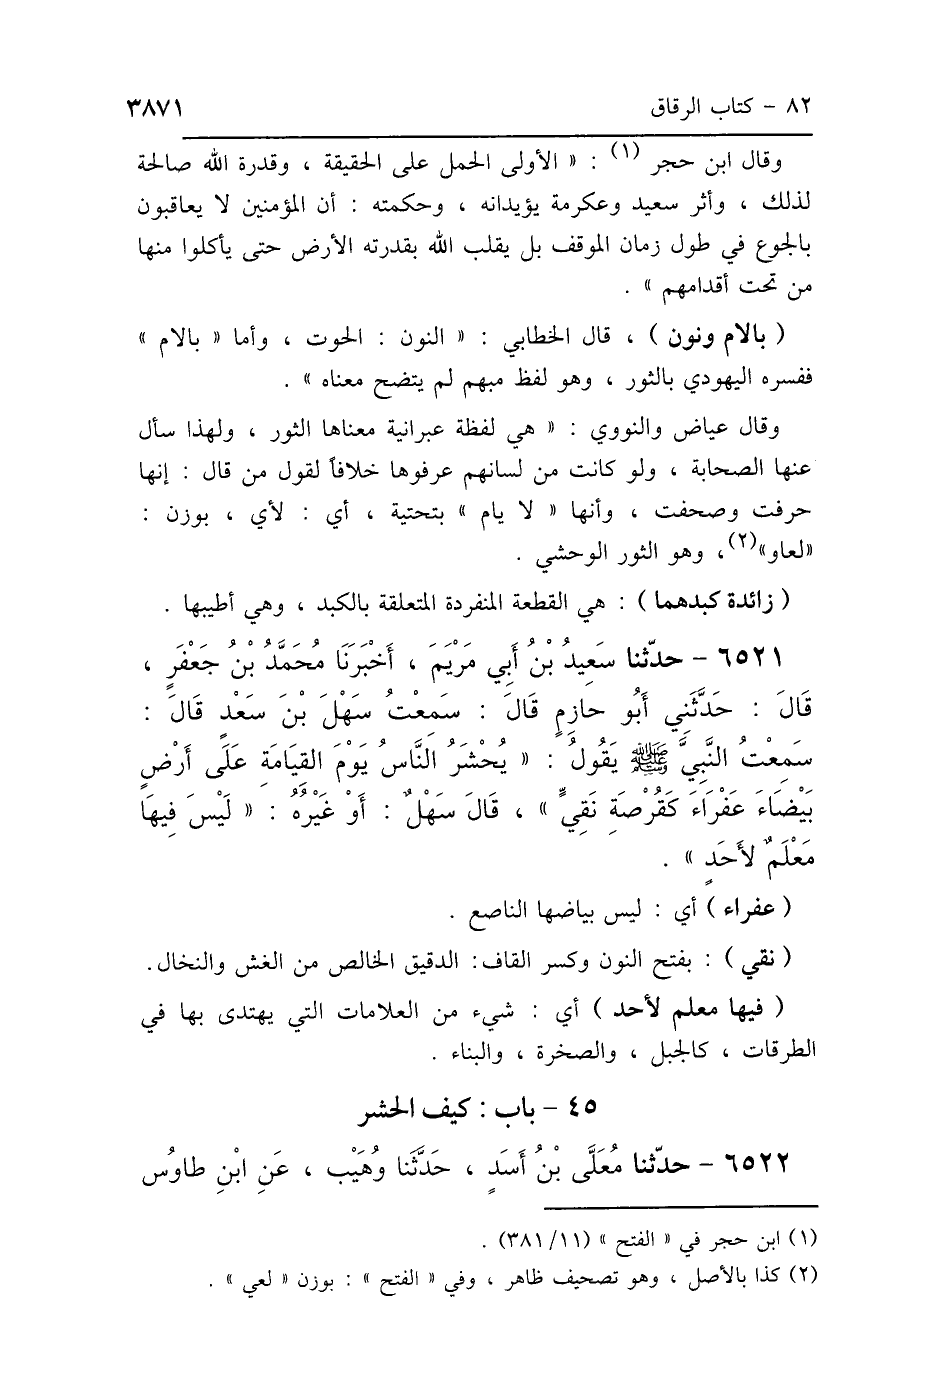 ٨٢ - كتاب الرقاق ٣٨٧١
وقال ابن حجر (١) : « الأولى الحمل على الحقيقة ، وقدرة الله صالحة
لذلك ، وأثر سعيد وعكرمة يؤيدانه ، وحكمته : أن المؤمنين لا يعاقبون
بالجوع في طول زمان الموقف بل يقلب الله بقدرته الأرض حتى يأكلوا منها
من تحت أقدامهم » .
( بالام ونون ) ، قال الخطابي : « النون : الحوت ، وأما « بالام »
ففسره اليهودي بالثور ، وهو لفظ مبهم لم يتضح معناه » .
وقال عياض والنووي : « هي لفظة عبرانية معناها الثور ، ولهذا سأل
عنها الصحابة ، ولو كانت من لسانهم عرفوها خلافاً لقول من قال : إنها
حرفت وصحفت ، وأنها « لا يام » بتحتية ، أي : لأي ، بوزن :
«لعاو»(٢)، وهو الثور الوحشي .
( زائدة كبدهما ) : هي القطعة المنفردة المتعلقة بالكبد ، وهي أطيبها .
٦٥٢١ - حدّثنا سَعِيدُ بْنُ أَبِي مَرْيَمَ ، أَخْبَرَنَا مُحَمَّدُ بْنُ جَعْفَرٍ ،
قَالَ : حَدَّثَنِي أَبُو حازِمٍ قَالَ : سَمِعْتُ سَهْلَ بْنَ سَعْدٍ قَالَ :
سَمِعْتُ النَّبِيَّ ﷺ يَقُولُ : « يُحْشَرُ النَّاسُ يَوْمَ القِيَامَةِ عَلَى أَرْضٍ
بَيْضَاءَ عَفْرَاءَ كَقُرْصَةِ نَقِيٍّ » ، قَالَ سَهْلٌ : أَوْ غَيْرُهُ : « لَيْسَ فِيهَا
مَعْلَمٌ لأَحَدٍ » .
( عفراء ) أي : ليس بياضها الناصع .
( نقي ) : بفتح النون وكسر القاف: الدقيق الخالص من الغش والنخال.
( فيها معلم لأحد ) أي : شيء من العلامات التي يهتدى بها في
الطرقات ، كالجبل ، والصخرة ، والبناء .
٤٥ - باب : كيف الحشر
٦٥٢٢ - حدّثنا مُعَلَّى بْنُ أَسَدٍ ، حَدَّثَنا وُهَيْب ، عَنِ ابْنِ طاوُس
(١) ابن حجر في « الفتح » (١١/ ٣٨١) .
(٢) كذا بالأصل ، وهو تصحيف ظاهر ، وفي « الفتح » : بوزن « لعي » .